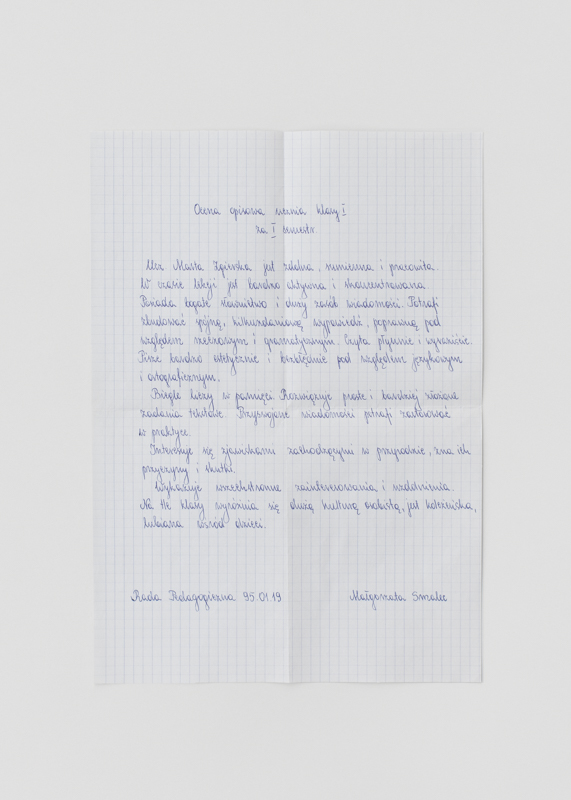 Ocena opisowa ucznia klasy I
za I semestr.
Ucz. Marta Zgierska jest zdolna, sumienna i pracowita.
W czasie lekcji jest bardzo aktywna i skoncentrowana.
Posiada bogate słownictwo i duży zasób wiadomości. Potrafi
zbudować spójną, kilkuzdaniową wypowiedź, poprawną pod
względem rzeczowym i gramatycznym. Czyta płynnie i wyraziście.
Pisze bardzo estetycznie i bezbłędnie pod względem językowym
i ortograficznym.
Biegle liczy w pamięci. Rozwiązuje proste i bardziej złożone
zadania tekstowe. Przyswojone wiadomości potrafi zastosować
w praktyce.
Interesuje się zjawiskami zachodzącymi w przyrodzie, zna ich
przyczyny i skutki.
Wykazuje wszechstronne zainteresowania i uzdolnienia.
Na tle klasy wyróżnia się dużą kulturą osobistą, jest koleżeńska,
lubiana wśród dzieci.
Rada Pedagogiczna 95.01.19 Małgorzata Smalec